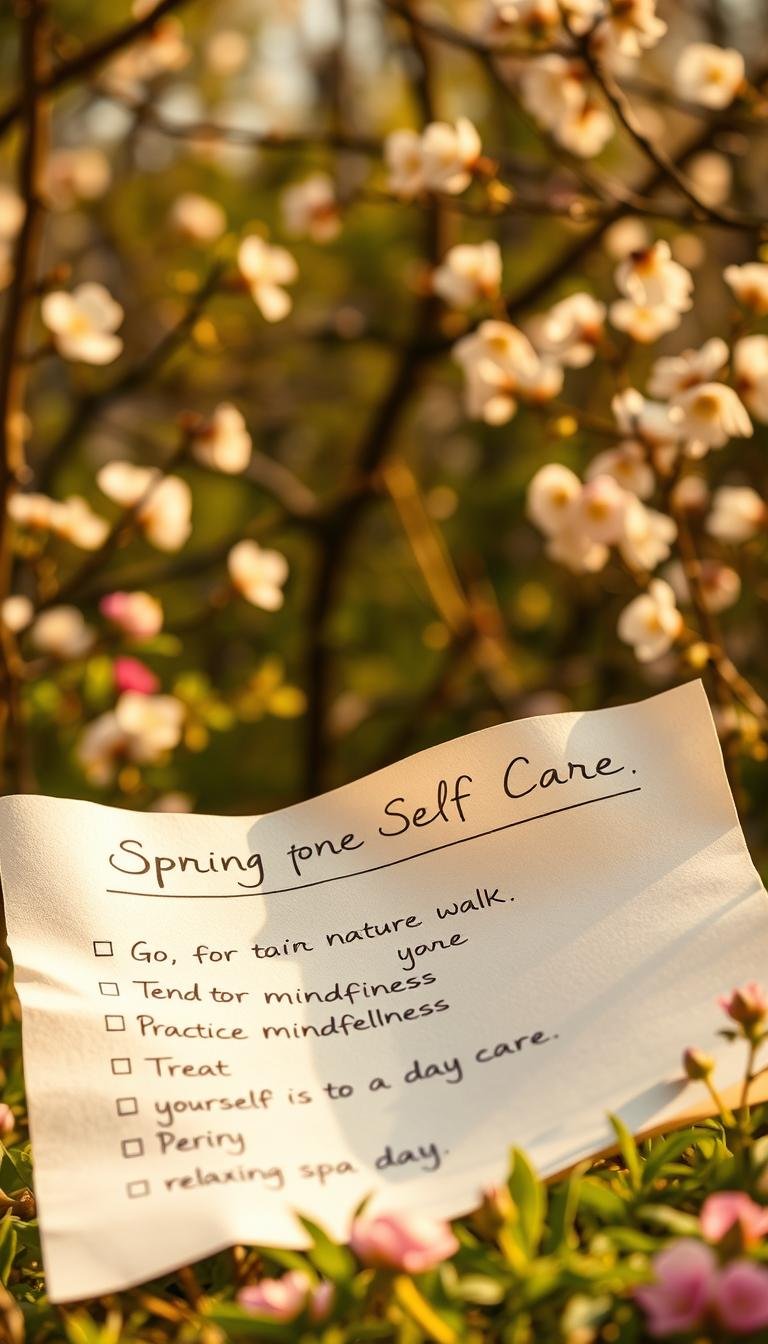 Spring fone Self Care.
Go, for tain nature walk.
yare
Tend tor mindfiness
Practice mindfellness
Treat
yourself is to a day care.
Periny
relaxing spa day.